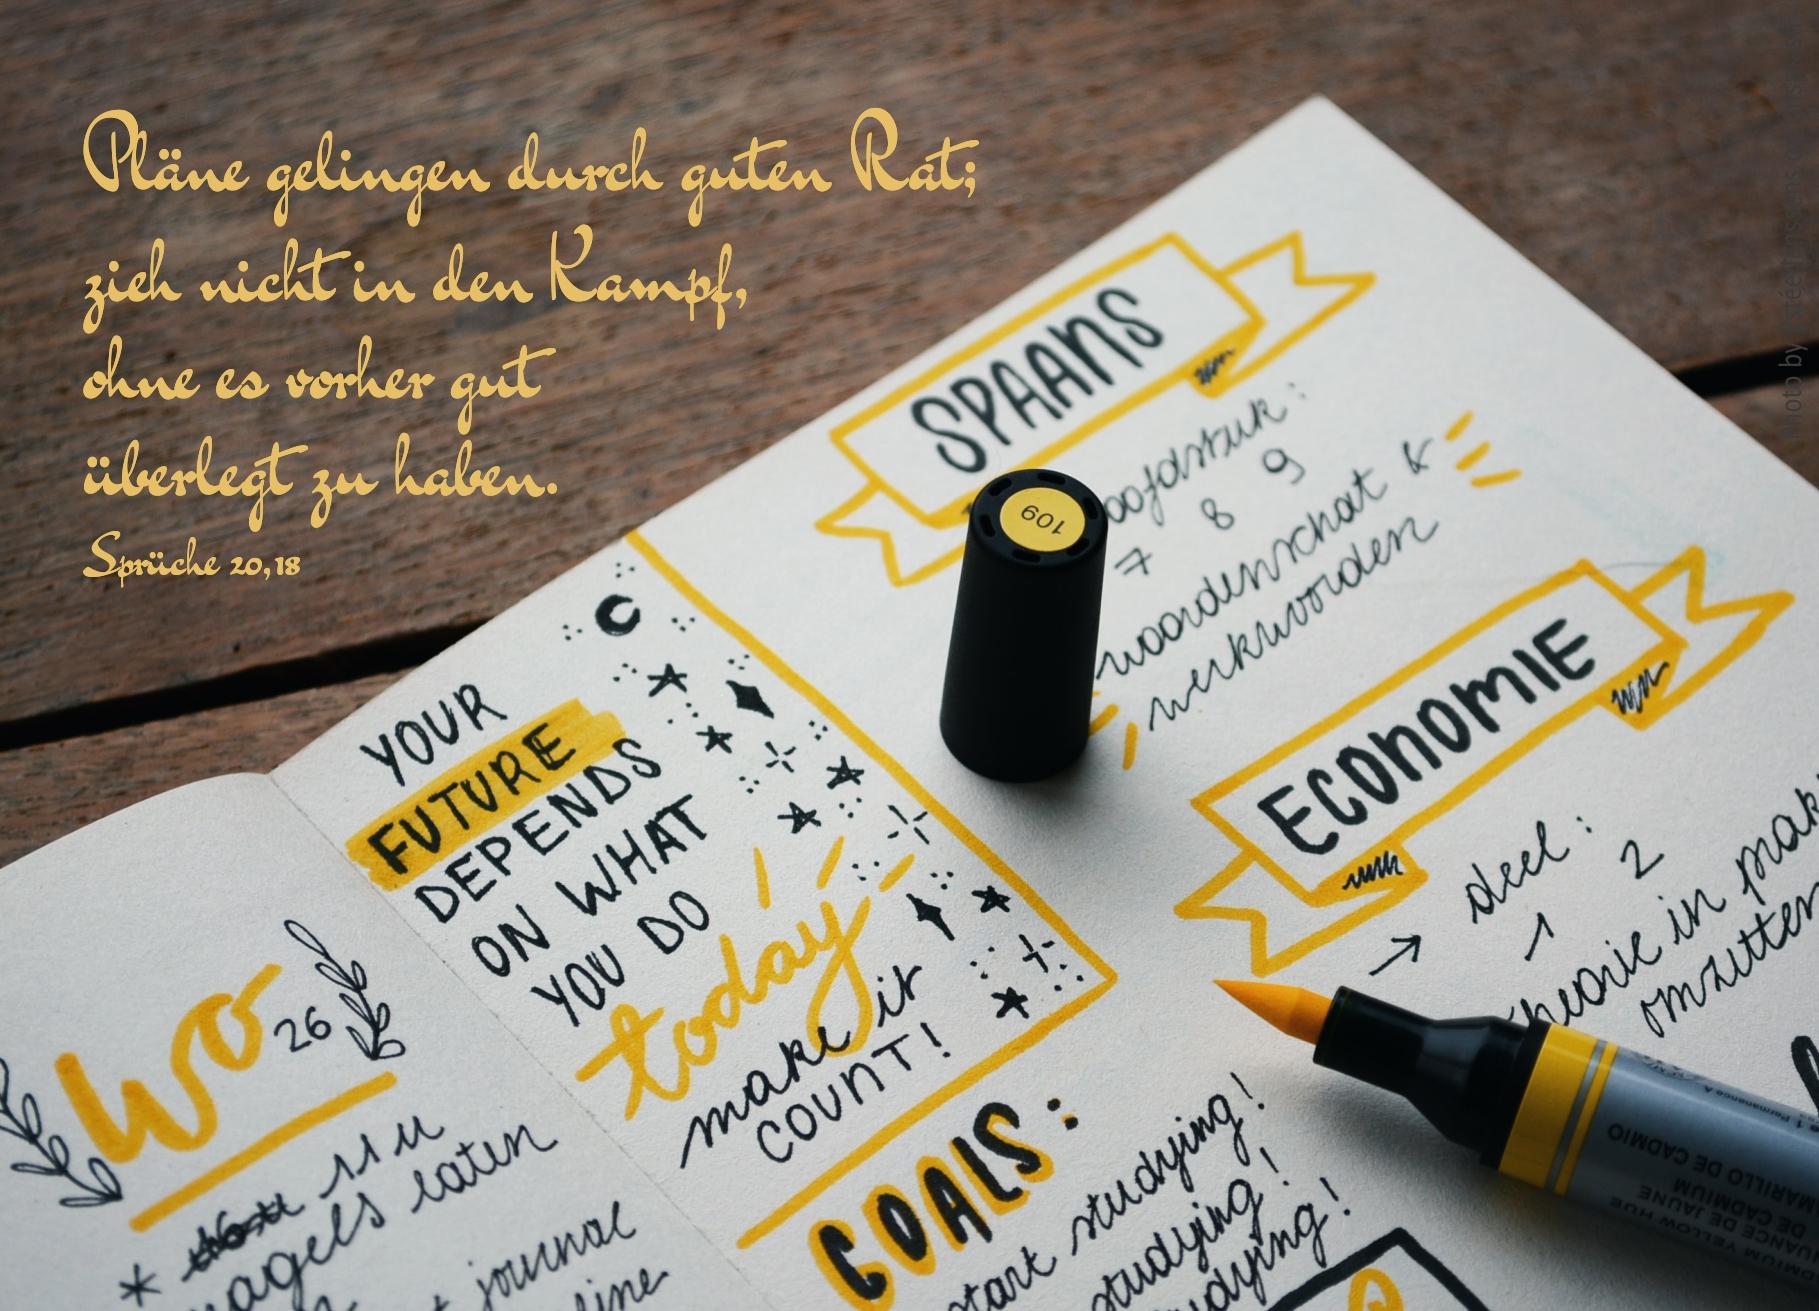 Pläne gelingen durch guten Rat;
zieh nicht in den Kampf,
ohne es vorher gut
überlegt zu haben.
Sprüche 20,18
YOUR
FUTURE
DEPENDS
ON WHAT
YOU DO
today
make it
COUNT!
GOALS:
start studying!
studying!
studying!
SPAANS
7 8 9
woordenschat &
werkwoorden
109
ECONOMIE
→ deel:
1 2
theorie in
omzetten
wo
26
11 u
nagels laten
journal
AMARILLO DE CADMIO
DE CADMIUM
NUANCE DE JAUNE
YELLOW HUE
photo by